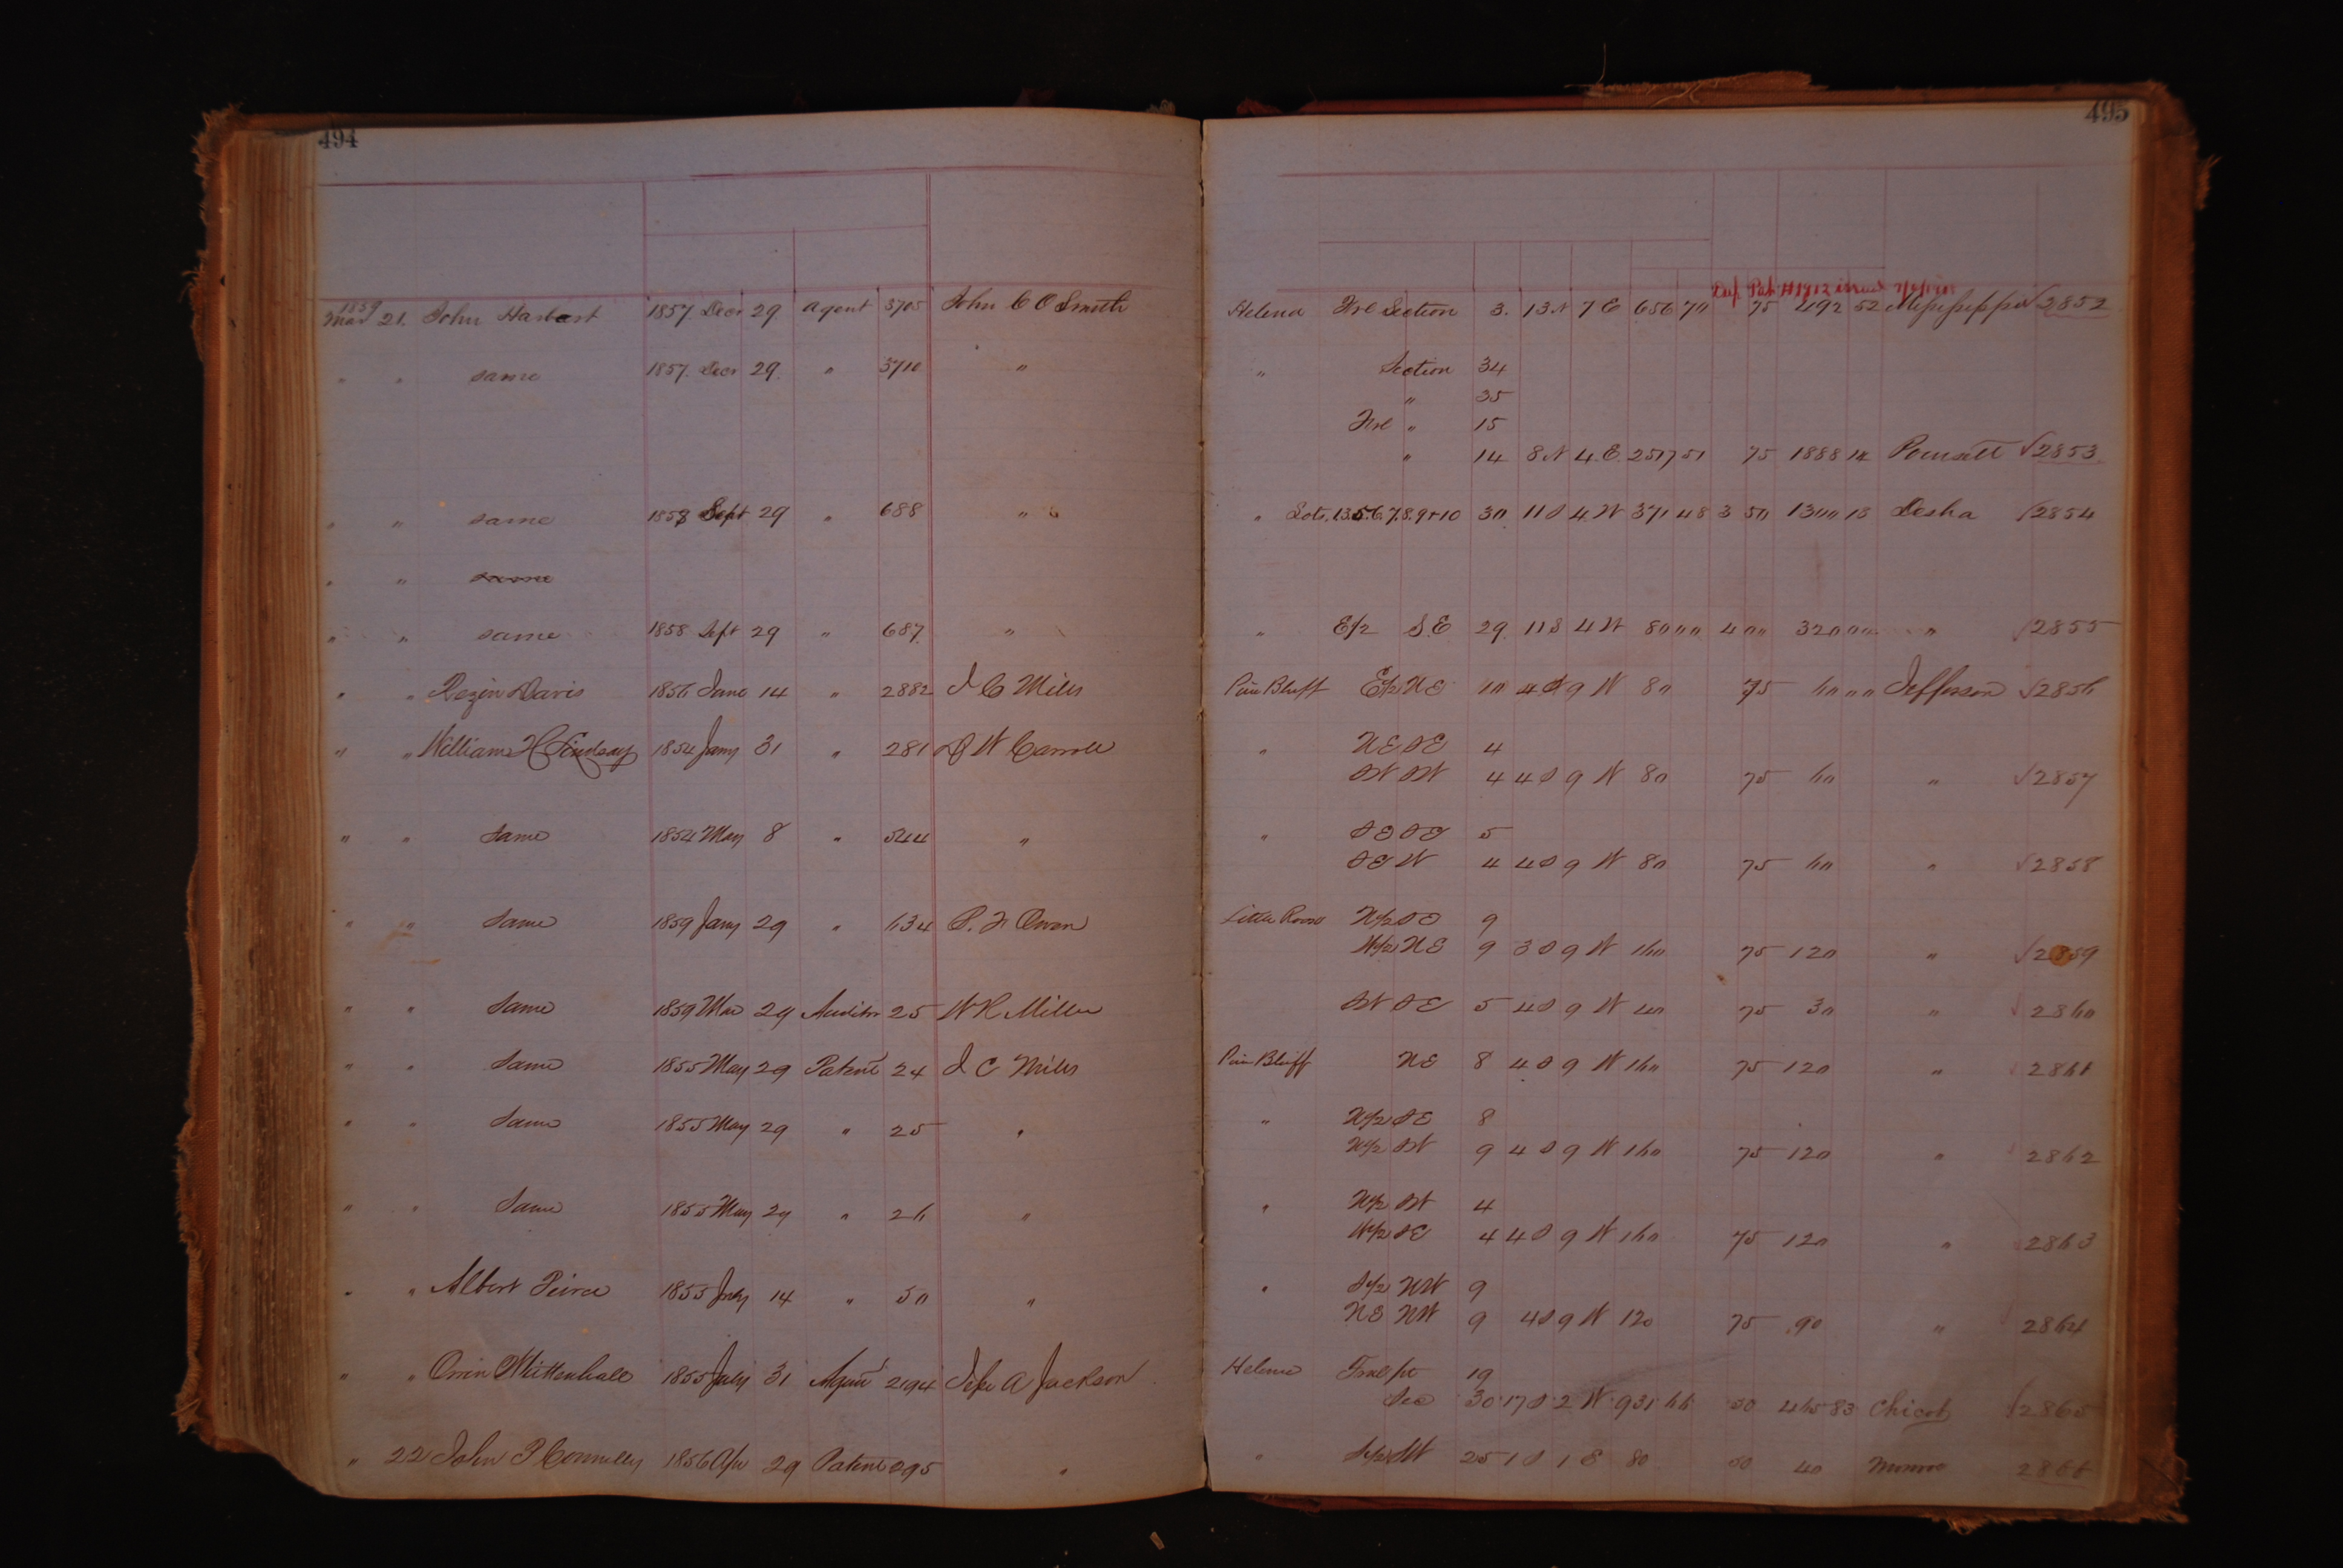 494
495
1859
Mar 21. John Harbert 1857 Decr 29 agent 3705 John C O Smith Helena Frl Section 3. 13 N 7 E 656 70 75 492 52 Mississippi √2852
" " same 1857. Decr 29. " 3710 " " Section 34
" 35
Frl " 15
" 14 8 N 4 E. 2517 51 75 1888 14 Poinsett √2853
" " same 1858 Sept 29 " 688 " " Lots. 1.3.5.6.7.8.9+10 30 11 S 4 W 371 48 3 50 1300 18 Desha √2854
" " same
" " same 1858 Sept 29 " 687. " " E/2 S.E 29. 11 S 4 W 80 00 4 00 320 00 " √2855
" " Rezin Davis 1856 June 14 " 2882 J C Miles Pine Bluff E/2 NE 10 4 S 9 W 80 75 60 00 Jefferson √2856
" " William H Lindsay 1854 Jany 31 " 281 D W Carroll " NE SE 4
SW SW 4 4 S 9 W 80 75 60 " √2857
" " Same 1854 May 8 " 544 " " SE SE 5
4 4 S 9 W 80 75 60 " √2858
" " Same 1859 Jany 29 " 634 Owen Little Rock 9
W/2 NE 9 3 S 9 W 160 75 120 " √2859
" " Same 1859 Mar 29 Auditor 25 W R Miller SW SE 5 4 S 9 W 40 75 30 " √2860
" " Same 1855 May 29 Patent 24 J C Miles Pine Bluff NE 8 4 S 9 W 160 75 120 " √2861
" " Same 1855 May 29 " 25 " " N/2 SE 8
N/2 SW 9 4 S 9 W 160 75 120 " √2862
" " Same 1855 May 29 " 26 " " N/2 SW 4
W/2 SE 4 4 S 9 W 160 75 120 " 2863
" " Albert Peirce 1855 14 " 50 " " S/2 NW 9
NE NW 9 4 S 9 W 120 75 90 " 2864
" " Orrin Mittenhall 1855 July 31 Agent 2194 A Jackson Helena Frl pt 19
Sec 30 17 S 2 W 931 66 50 465 83 Chicot √2865
" 22 John P Connelly 1856 Apr 29 Patent 295 " " S/2 SW 25 1 S 1 E 80 50 40 Monroe 2866